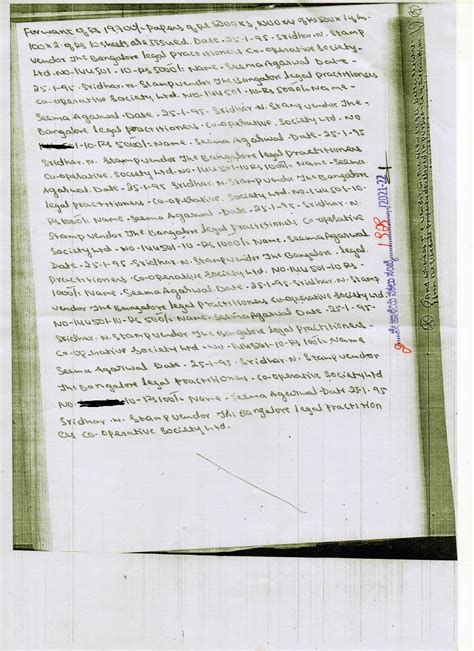 For want of Rs 19,700/- Papers of Rs 5000 x 3, 1000 x 4 of Rs 500 x 1 of Rs-
100 x 2 of Rs 10 sheets are Issued. Date - 25-1-95 Sridhar. N. Stamp
vendor The Bangalore legal Practitioners Co-operative Society-
Ltd. No-144501-10-Rs 5000/- Name - Seema Agarwal Date -
25-1-95 - Sridhar. N. Stamp vendor The Bangalore legal Practitioners
co-operative Society Ltd. No-144501-10-Rs 5000/- Name -
Seema Agarwal - Date - 25-1-95 - Sridhar. N. Stamp vendor The -
Bangalore legal Practitioners - co-operative. Society Ltd - NO
-10-Rs 5000/- Name - Seema Agarwal - Date - 25-1-95
Sridhar. N. Stamp vendor The Bangalore legal Practitioners
Co-operative. Society Ltd - NO-144501-10-Rs 1000/- Name - Seema
Agarwal Date - 25-1-95 Sridhar. N. Stamp vendor The Bangalore
legal Practitioners - Co-operative Society Ltd. NO-144501-10-
Rs 1000/- Name - Seema Agarwal - Date - 25-1-95 - Sridhar. N.
Stamp vendor The Bangalore legal Practitioners Co-operative
Society Ltd - NO - 144501-10-Rs 1000/- Name - Seema Agarwal
Date - 25-1-95 - Sridhar. N. Stamp vendor The Bangalore - legal
Practitioners - Co-operative Society Ltd. NO-144501-10-Rs -
1000/- Name - Seema Agarwal - Date - 25-1-95 - Sridhar. N. Stamp
vendor The Bangalore legal Practitioners Co-operative Society Ltd
NO-144501-10-Rs 500/- Name - Seema Agarwal - Date - 25-1-95
Sridhar. N. Stamp vendor The Bangalore legal Practitioners -
Co-operative Society Ltd - NO-144501-10-Rs 100/- Name
Seema Agarwal Date - 25-1-95 - Sridhar. N. Stamp vendor
The Bangalore legal Practitioners - co-operative Society Ltd
NO -10-Rs 100/- Name - Seema Agarwal Date 25-1-95
Sridhar. N. Stamp vendor The Bangalore legal Practition
ers Co-operative Society Ltd.
/2021-22